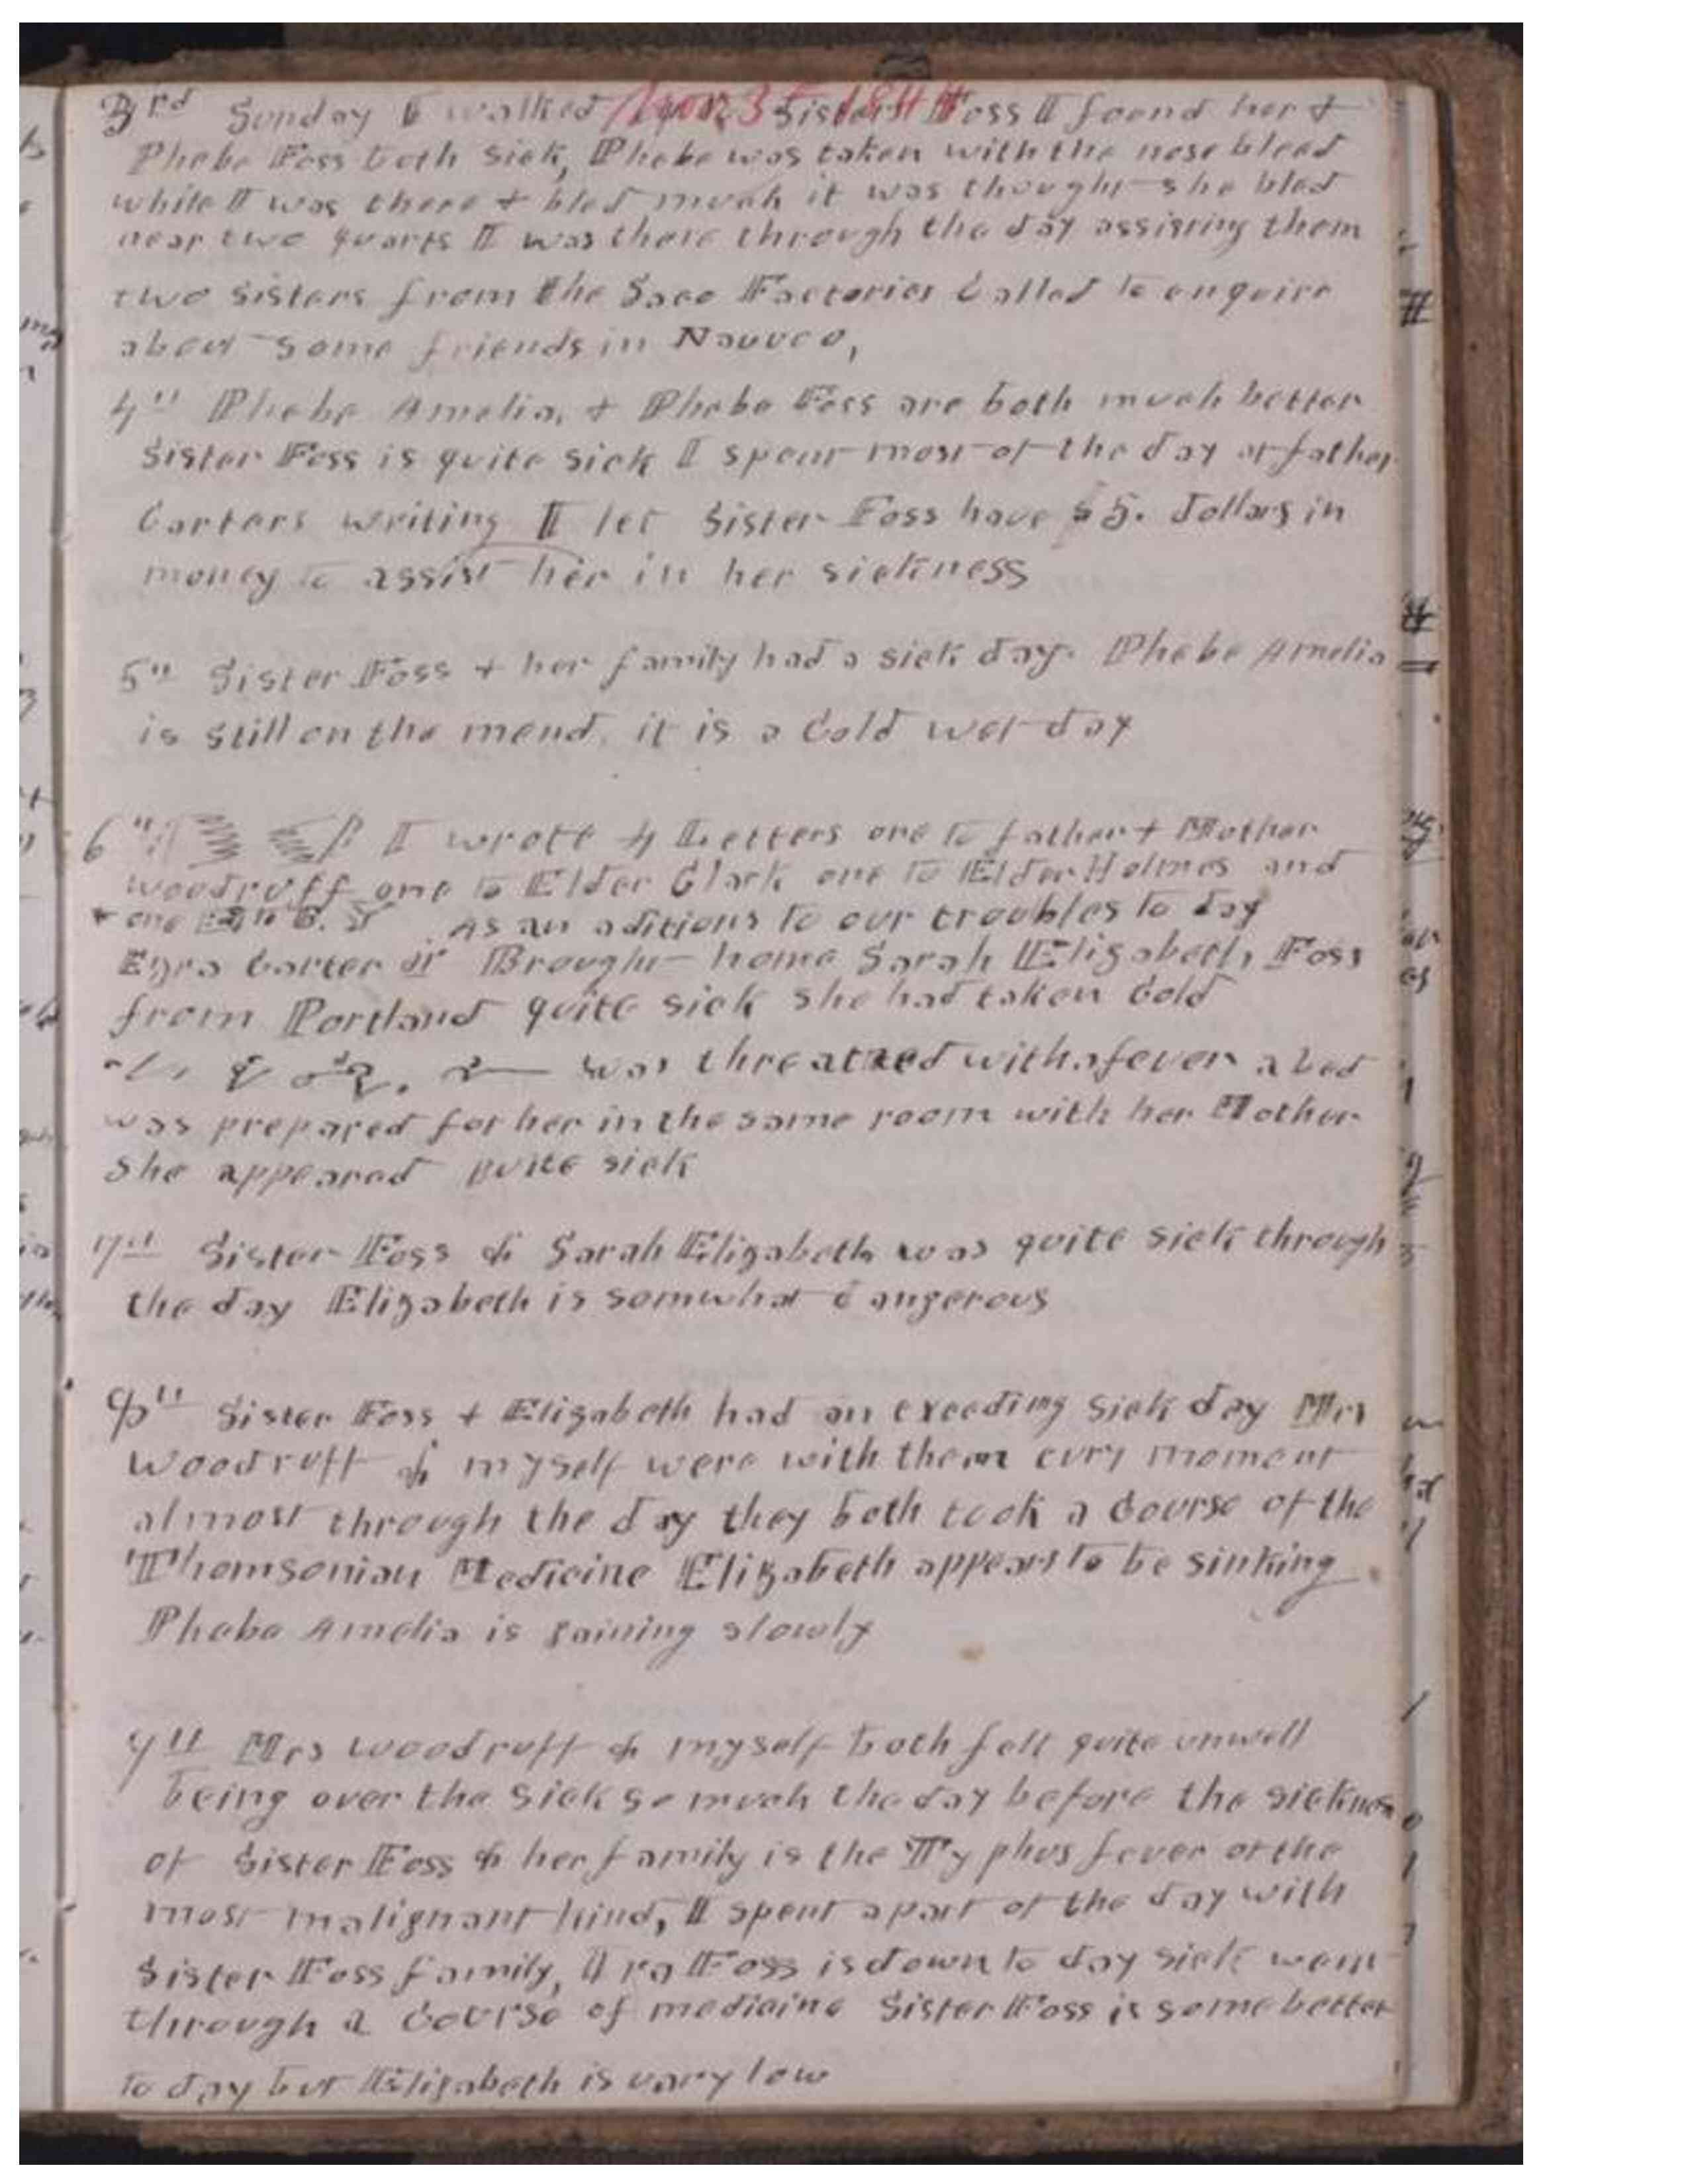 3rd Sunday I walked Sister Foss I found her &
Phebe Foss both sick, Phebe was taken with the nose bleed
while I was there & bled much it was thought she bled
near two quarts I was there through the day assisting them
two sisters from the Saco Factories Called to enquire
about some friends in Nauvoo,
4" Phebe Amelia, & Phebe Foss are both much better
Sister Foss is quite sick I spent most of the day at father
Carters writing I let Sister Foss have $5. dollars in
money to assist her in her sickness
5" Sister Foss & her family had a sick day. Phebe Amelia
is still on the mend. it is a Cold wet day
6" I wrote 4 Letters one to father & Mother
woodruff one to Elder Clark one to Elder Holmes and
one As an aditions to our troubles to day
Ezra Carter jr Brought home Sarah Elizabeth Foss
from Portland quite sick she had taken Cold
was threatned with a fever a bed
was prepared for her in the same room with her Mother
she appeared quite sick
7" Sister Foss & Sarah Elizabeth was quite sick through
the day Elizabeth is somwhat dangerous
8" Sister Foss & Elizabeth had an exceeding sick day Mrs
Woodruff & myself were with them evry moment
almost through the day they both took a Course of the
Thomsonian Medicine Elizabeth appears to be sinking
Phebe Amelia is gaining slowly
9" Mrs woodruff & myself both felt quite unwell
being over the sick so much the day before the sickness
of Sister Foss & her family is the Typhus fever of the
most malignant kind, I spent a part of the day with
Sister Foss family, Ira Foss is down to day sick went
through a Course of medicine Sister Foss is some better
to day but Elizabeth is vary low